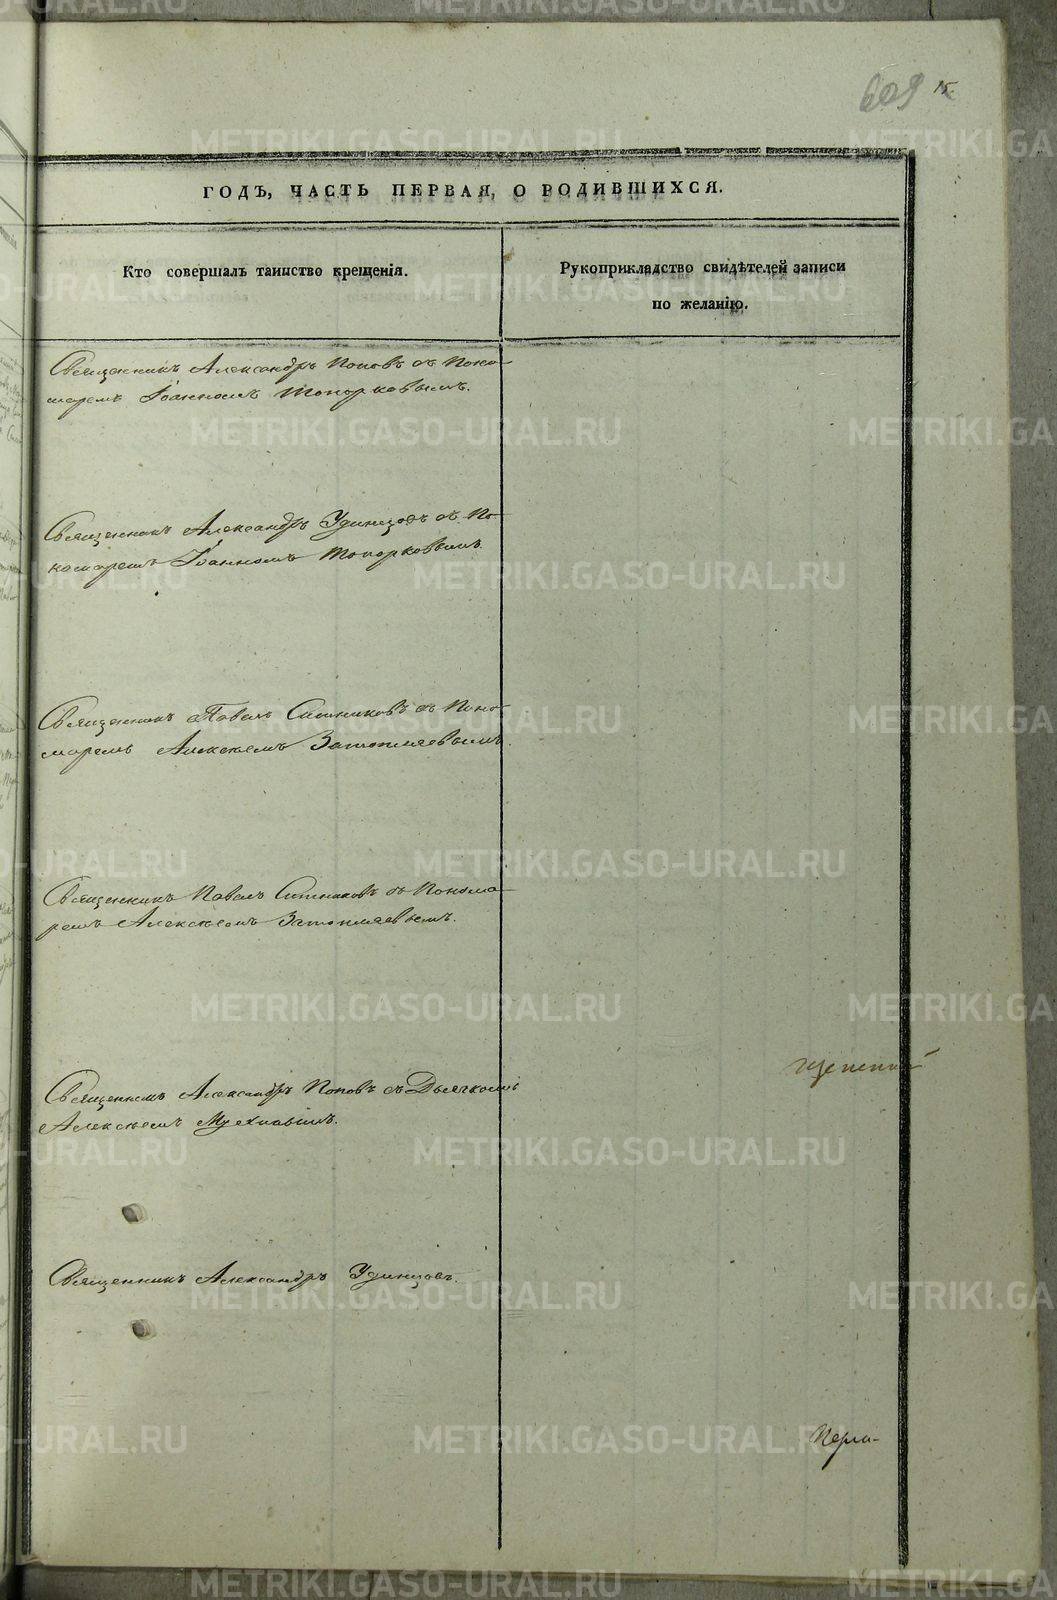 609 15.
ГОДЪ, ЧАСТЬ ПЕРВАЯ, О РОДИВШИХСЯ.
Кто совершалъ таинство крещенія.
Рукоприкладство свидѣтелей записи
по желанію.
Священникъ Александръ Поповъ съ Поно-
маремъ Іоанномъ Топорковымъ.
Священникъ Александръ Удинцовъ съ По-
номаремъ Іоанномъ Топорковымъ.
Священникъ Павелъ Ситниковъ съ Поно-
маремъ Алексѣемъ Затопляевымъ.
Священникъ Павелъ Ситниковъ съ Понома-
ремъ Алексѣемъ Затопляевымъ.
Священникъ Александръ Поповъ съ Дьячкомъ
Алексѣемъ
Священникъ Александръ Удинцовъ.
METRIKI.GASO-URAL.RU